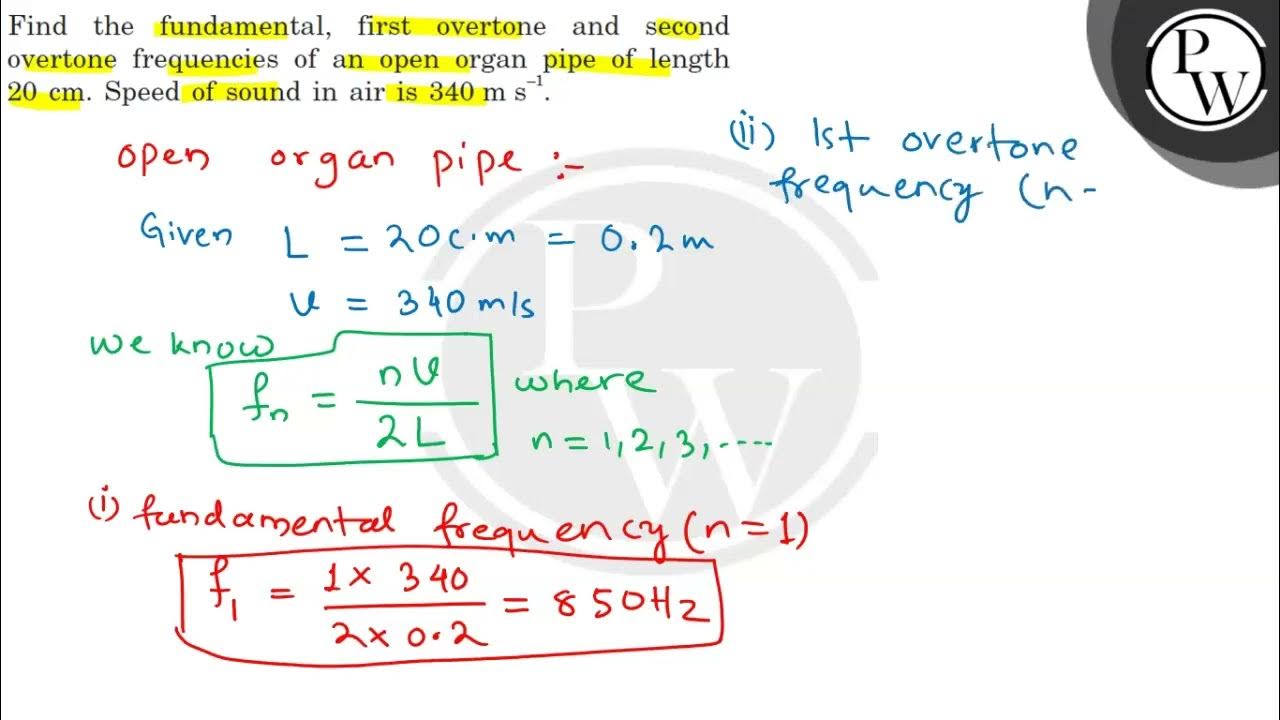 Find the fundamental, first overtone and second
overtone frequencies of an open organ pipe of length
20 cm. Speed of sound in air is 340 m s⁻¹.
PW
open organ pipe :-
Given L = 20 c.m = 0.2 m
v = 340 m/s
we know
fₙ = nv / 2L where
n = 1, 2, 3, ....
(i) fundamental frequency (n = 1)
f₁ = 1 × 340 / 2 × 0.2 = 850 Hz
(ii) 1st overtone
frequency (n -
PW